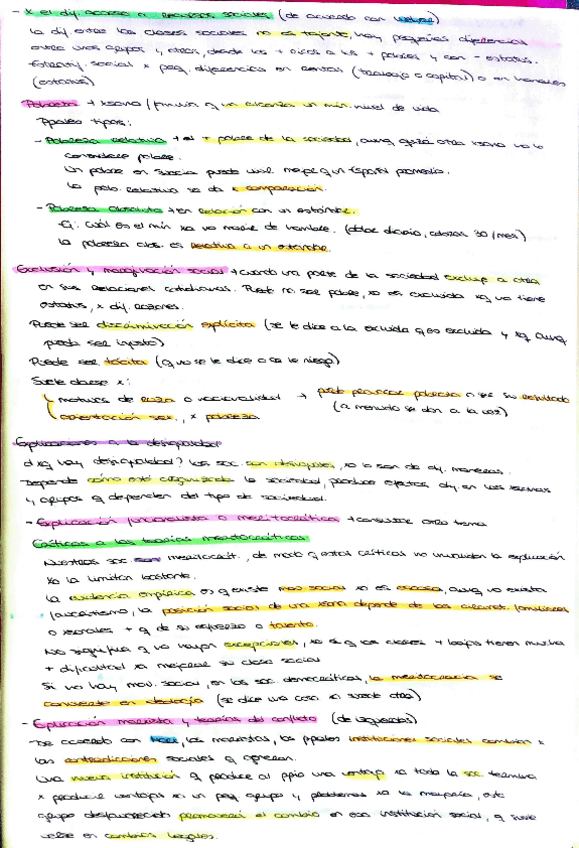 - x el dif. acceso a recursos sociales (de acuerdo con Weber)
La dif. entre las clases sociales no es tajante, hay pequeñas diferencias
entre unos grupos y otros, desde los + ricos a los + pobres y con - estatus.
Estratif. social x peq. diferencias en rentas (trabajo o capital) o en honores
(estatus)
Pobreza → xsona/familia q no alcanza un mín. nivel de vida
Ppales tipos:
- Pobreza relativa → el + pobre de la sociedad, aunq quizá otra xsona no lo
considere pobre.
Un pobre en Suecia puede vivir mejor q un español promedio.
La pob. relativa se da x comparación.
- Pobreza absoluta → en relación con un estándar.
Ej. Cuál es el mín xa no morir de hambre. (dólar diario, 30/mes)
La pobreza abs. es relativa a un estándar.
Exclusión y marginación social → cuando una parte de la sociedad excluye a otra
en sus relaciones cotidianas. Puede no ser pobre, xo es excluida xq no tiene
estatus, x dif. razones.
Puede ser discriminación explícita (se le dice a la excluida q es excluida y xq aunq
pueda ser injusto)
Puede ser tácita (q no se le dice o se le niega)
Suele darse x:
motivos de raza o nacionalidad → puede provocar pobreza o ser su resultado
orientación sex., x pobreza (a menudo se dan a la vez)
Explicaciones a la desigualdad
¿Xq hay desigualdad? Las soc. son desiguales, xo lo son de dif. maneras.
Depende cómo esté organizada la sociedad, produce efectos dif. en las xsonas
y grupos q dependen del tipo de sociedad.
- Explicación funcionalista o meritocrática → consultar otro tema
Críticas a las teorías meritocráticas
Nuestras soc. son meritocrát., de modo q estas críticas no invalidan la explicación
xo la limitan bastante.
La evidencia empírica es q existe mov. social xo es escasa, aunq no exista
la posición social de una xsona depende de las circunst. familiares
o sociales + q de su esfuerzo o talento.
No significa q no hayan excepciones, xo sí q las clases + bajas tienen mucha
+ dificultad xa mejorar su clase social
Si no hay mov. social, en las soc. democráticas, la meritocracia se
convierte en ideología (se dice una cosa xo sucede otra)
- Explicación marxista y teorías del conflicto (de izquierdas)
De acuerdo con Marx, los marxistas, las ppales instituciones sociales cambian x
las contradicciones sociales q generan.
Una nueva institución q produce al ppio una ventaja xa toda la soc. termina
x producir ventajas en un peq. grupo y problemas xa la mayoría, este
grupo desfavorecido promoverá el cambio en esa institución social, q suele
verse en cambios legales.